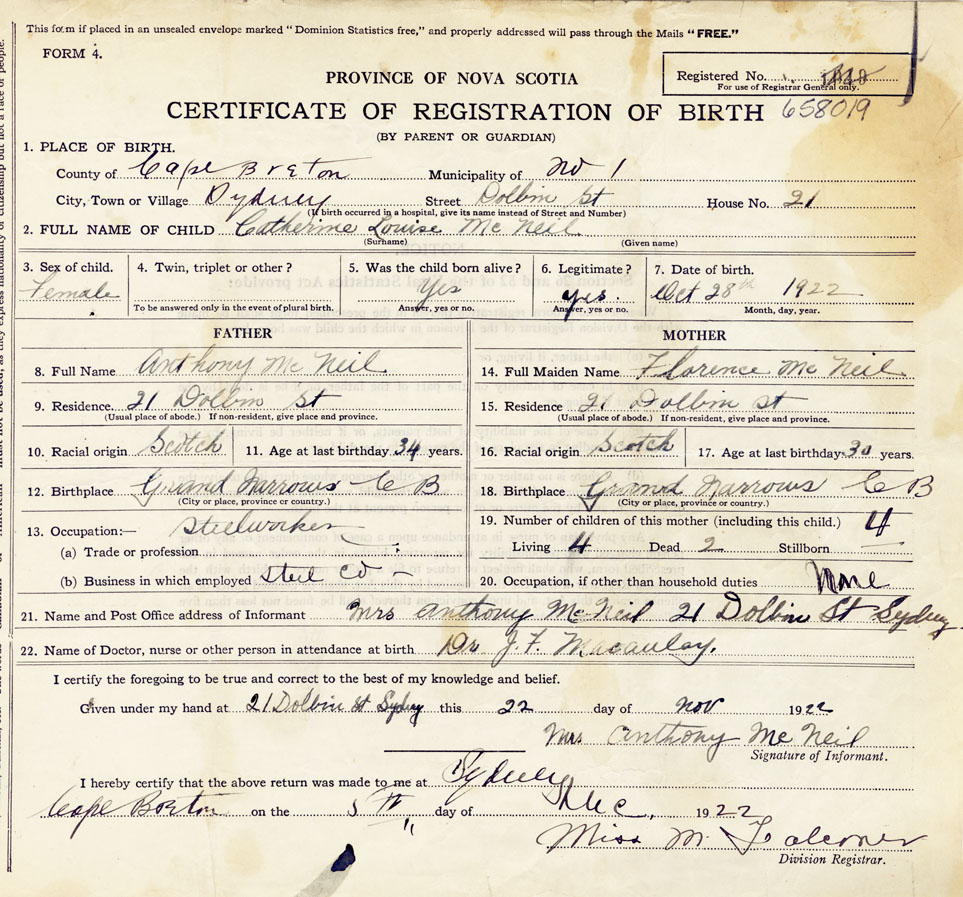 This form if placed in an unsealed envelope marked "Dominion Statistics free," and properly addressed will pass through the Mails "FREE."
FORM 4.
Registered No.
For use of Registrar General only.
PROVINCE OF NOVA SCOTIA
CERTIFICATE OF REGISTRATION OF BIRTH 658019
(BY PARENT OR GUARDIAN)
1. PLACE OF BIRTH.
County of Cape Breton Municipality of No 1
City, Town or Village Sydney Street Dolbin St House No. 21
(If birth occurred in a hospital, give its name instead of Street and Number)
2. FULL NAME OF CHILD Catherine Louise Mc Neil
(Surname) (Given name)
3. Sex of child. 4. Twin, triplet or other? 5. Was the child born alive? 6. Legitimate? 7. Date of birth.
Female Yes yes. Oct 28th 1922
To be answered only in the event of plural birth. Answer, yes or no. Answer, yes or no. Month, day, year.
FATHER MOTHER
8. Full Name Anthony Mc Neil 14. Full Maiden Name Florence Mc Neil
9. Residence. 21 Dolbin St 15. Residence 21 Dolbin st
(Usual place of abode.) If non-resident, give place and province. (Usual place of abode.) If non-resident, give place and province.
10. Racial origin Scotch 11. Age at last birthday 34 years. 16. Racial origin Scotch 17. Age at last birthday 30 years.
12. Birthplace Grand Narrows C B 18. Birthplace Grand Narrows C B
(City or place, province or country.) (City or place, province or country.)
13. Occupation:— Steelworker 19. Number of children of this mother (including this child.) 4
(a) Trade or profession Living 4 Dead 2 Stillborn —
(b) Business in which employed Steel Co — 20. Occupation, if other than household duties None
21. Name and Post Office address of Informant Mrs Anthony McNeil 21 Dolbin St Sydney
22. Name of Doctor, nurse or other person in attendance at birth Dr J. F. Macaulay.
I certify the foregoing to be true and correct to the best of my knowledge and belief.
Given under my hand at 21 Dolbin St Sydney this 22 day of Nov 1922
Mrs Anthony Mc Neil
Signature of Informant.
I hereby certify that the above return was made to me at Sydney
Cape Breton on the 5th day of Dec, 1922
Miss M. Falconer
Division Registrar.